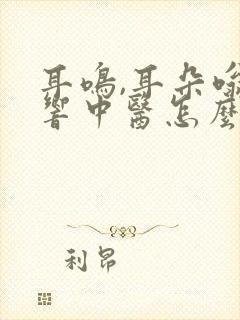 耳鳴,耳朵嗡
響中醫怎麼
利昂